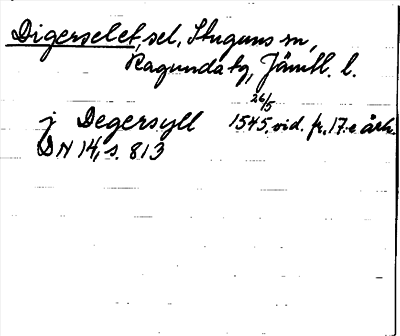 Digerselet, sel, Stuguns sn,
Ragunda tg, Jämtl. l.
26/5
j Degersyll 1545, vid. fr. 17-e årh.
DN 14, s. 813